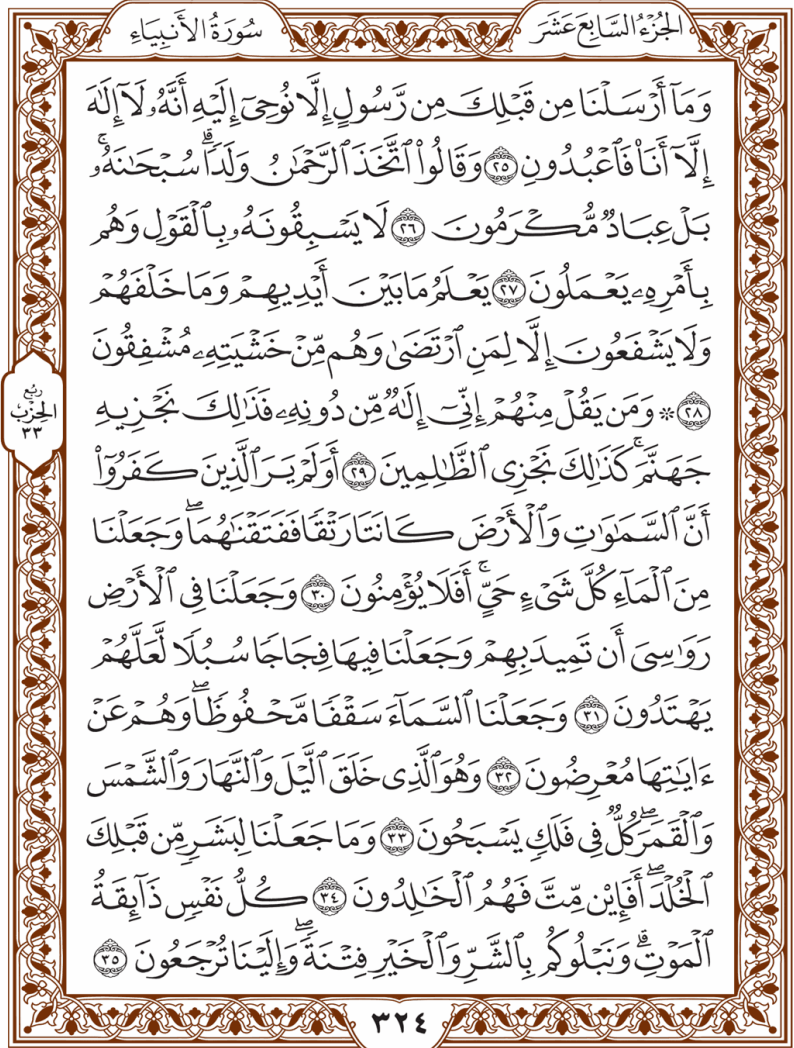 الجُزْءُ السَّابِعَ عَشَرَ
سُورَةُ الأَنْبِيَاءِ
وَمَآ أَرۡسَلۡنَا مِن قَبۡلِكَ مِن رَّسُولٍ إِلَّا نُوحِيٓ إِلَيۡهِ أَنَّهُۥ لَآ إِلَٰهَ
إِلَّآ أَنَا۠ فَٱعۡبُدُونِ ٢٥ وَقَالُواْ ٱتَّخَذَ ٱلرَّحۡمَٰنُ وَلَدٗاۗ سُبۡحَٰنَهُۥۚ
بَلۡ عِبَادٞ مُّكۡرَمُونَ ٢٦ لَا يَسۡبِقُونَهُۥ بِٱلۡقَوۡلِ وَهُم
بِأَمۡرِهِۦ يَعۡمَلُونَ ٢٧ يَعۡلَمُ مَا بَيۡنَ أَيۡدِيهِمۡ وَمَا خَلۡفَهُمۡ
وَلَا يَشۡفَعُونَ إِلَّا لِمَنِ ٱرۡتَضَىٰ وَهُم مِّنۡ خَشۡيَتِهِۦ مُشۡفِقُونَ
٢٨ ۞ وَمَن يَقُلۡ مِنۡهُمۡ إِنِّيٓ إِلَٰهٞ مِّن دُونِهِۦ فَذَٰلِكَ نَجۡزِيهِ
جَهَنَّمَۚ كَذَٰلِكَ نَجۡزِي ٱلظَّٰلِمِينَ ٢٩ أَوَلَمۡ يَرَ ٱلَّذِينَ كَفَرُوٓاْ
أَنَّ ٱلسَّمَٰوَٰتِ وَٱلۡأَرۡضَ كَانَتَا رَتۡقٗا فَفَتَقۡنَٰهُمَاۖ وَجَعَلۡنَا
مِنَ ٱلۡمَآءِ كُلَّ شَيۡءٍ حَيٍّۚ أَفَلَا يُؤۡمِنُونَ ٣٠ وَجَعَلۡنَا فِي ٱلۡأَرۡضِ
رَوَٰسِيَ أَن تَمِيدَ بِهِمۡ وَجَعَلۡنَا فِيهَا فِجَاجٗا سُبُلٗا لَّعَلَّهُمۡ
يَهۡتَدُونَ ٣١ وَجَعَلۡنَا ٱلسَّمَآءَ سَقۡفٗا مَّحۡفُوظٗاۖ وَهُمۡ عَنۡ
ءَايَٰتِهَا مُعۡرِضُونَ ٣٢ وَهُوَ ٱلَّذِي خَلَقَ ٱلَّيۡلَ وَٱلنَّهَارَ وَٱلشَّمۡسَ
وَٱلۡقَمَرَۖ كُلّٞ فِي فَلَكٖ يَسۡبَحُونَ ٣٣ وَمَا جَعَلۡنَا لِبَشَرٖ مِّن قَبۡلِكَ
ٱلۡخُلۡدَۖ أَفَإِيْن مِّتَّ فَهُمُ ٱلۡخَٰلِدُونَ ٣٤ كُلُّ نَفۡسٖ ذَآئِقَةُ
ٱلۡمَوۡتِۗ وَنَبۡلُوكُم بِٱلشَّرِّ وَٱلۡخَيۡرِ فِتۡنَةٗۖ وَإِلَيۡنَا تُرۡجَعُونَ ٣٥
رُبُع
الحِزْب
٣٣
٣٢٤